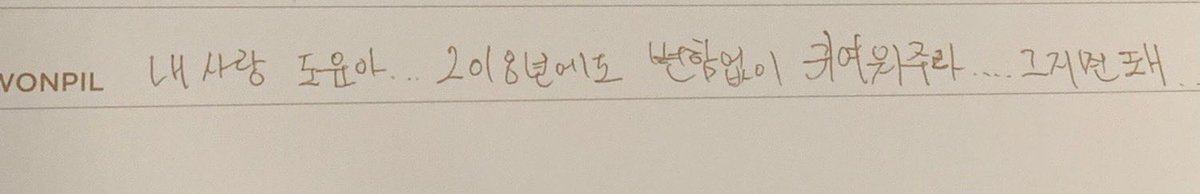 VONPIL 내 사랑 도윤아... 2018년에도 변함없이 귀여워주라.... 그거면 돼.